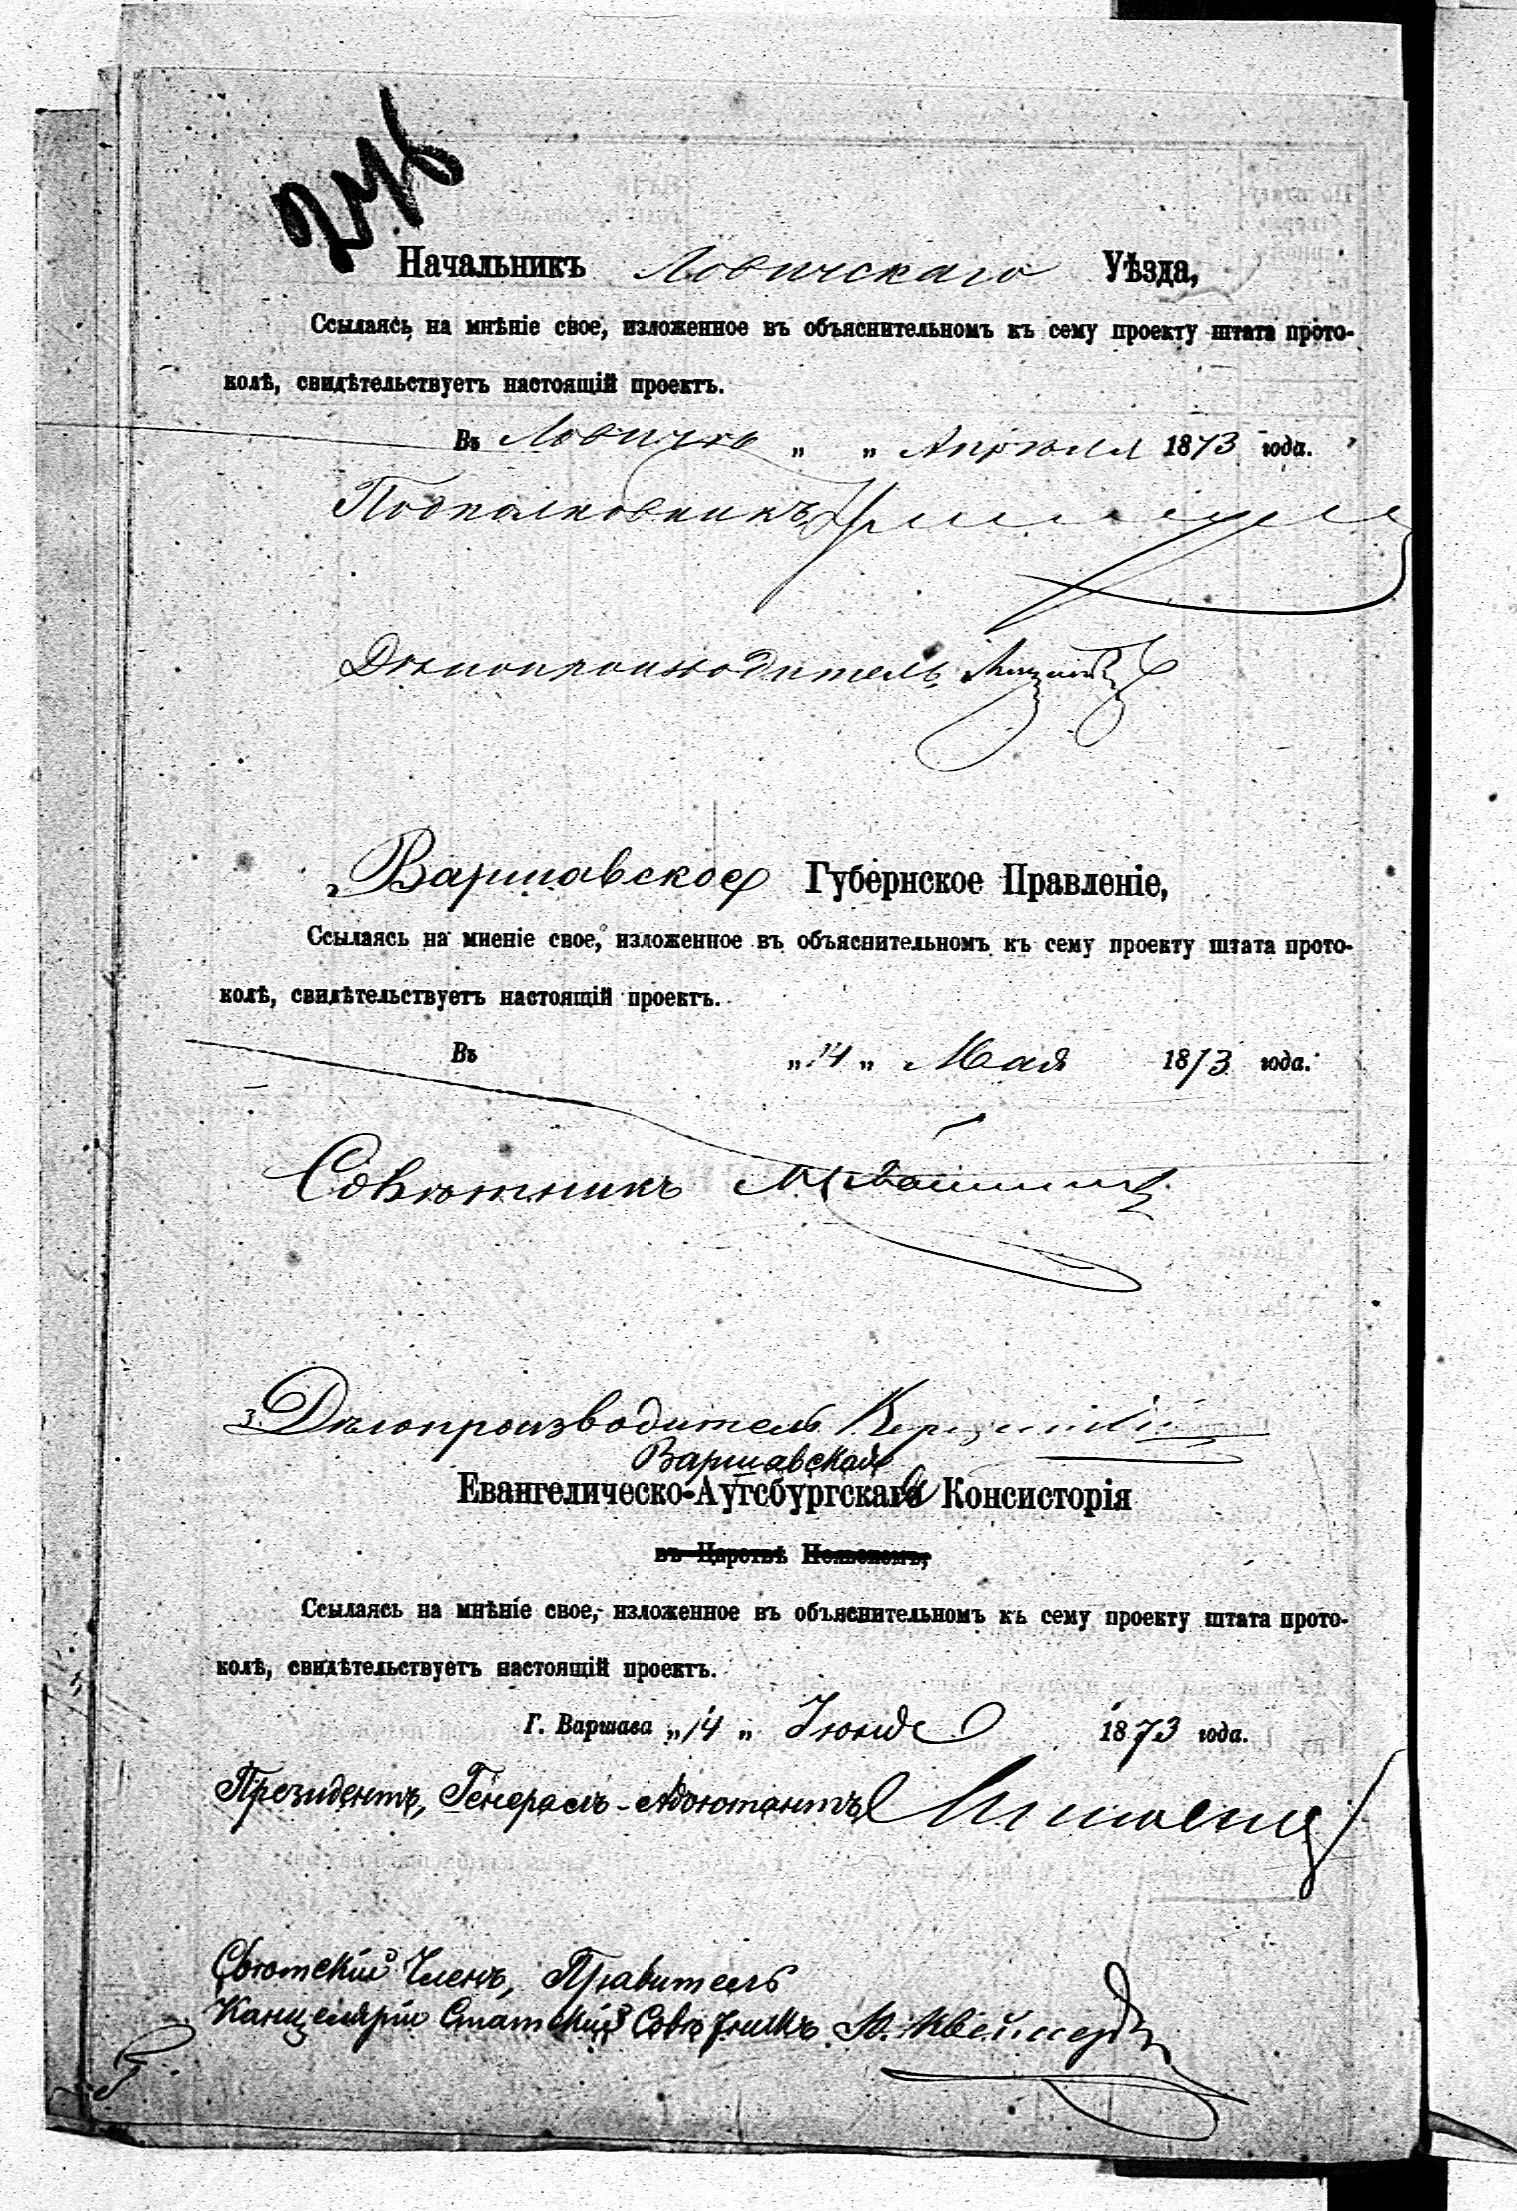 Начальникъ Ловичскаго Уѣзда,
Ссылаясь на мнѣніе свое, изложенное въ объяснительномъ къ сему проекту штата прото-
колѣ, свидѣтельствуетъ настоящій проектъ.
Въ Ловичѣ „ „ Апрѣля 1873 года.
Подполковникъ
Дѣлопроизводитель
Варшавское Губернское Правленіе,
Ссылаясь на мненіе свое, изложенное въ объяснительномъ къ сему проекту штата прото-
колѣ, свидѣтельствуетъ настоящій проектъ.
Въ „14„ Мая 1873 года.
Совѣтникъ
Дѣлопроизводитель
Варшавская
Евангелическо-Аугсбургская Консисторія
въ Царствѣ Польскомъ,
Ссылаясь на мнѣніе свое, изложенное въ объяснительномъ къ сему проекту штата прото-
колѣ, свидѣтельствуетъ настоящій проектъ.
Г. Варшава „14„ Іюня 1873 года.
Президентъ, Генералъ-Адъютантъ
Свѣтскій Членъ, Правитель
Канцеляріи Статскій Совѣтникъ